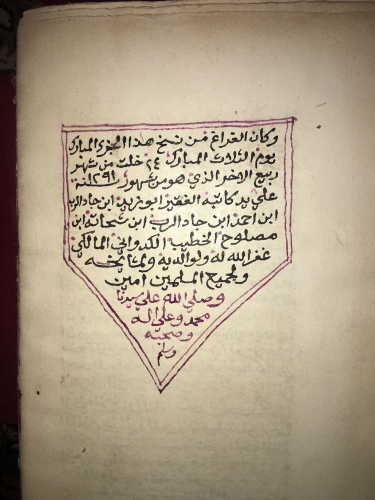 وكان الفراغ من نسخ هذا الجزء المبارك
يوم الثلاث المبارك ٢٤ خلت من شهر
ربيع الاخر الذي هو من شهور ١٢٩١ سنة
علي يد كاتبه الفقير ابو زيد ابن جاد الرب
ابن احمد ابن جاد الرب ابن شحاته ابن
مصلوح الخطيب المالكي
غفر الله له ولوالديه ولمشايخه
ولجميع المسلمين امين
وصلي الله علي سيدنا
محمد وعلي اله
وصحبه
وسلم